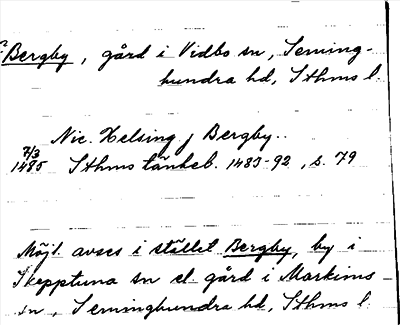 ? Bergby, gård i Vidbo sn, Seming-
hundra hd, Sthms l.
Nic. Helsing j Bergby..
7/3
1485 Sthms tänkeb. 1483-92, s. 79
Möjl. avses i stället Bergby, by i
Skepptuna sn el. gård i Markims
sn, Semminghundra hd, Sthms l.